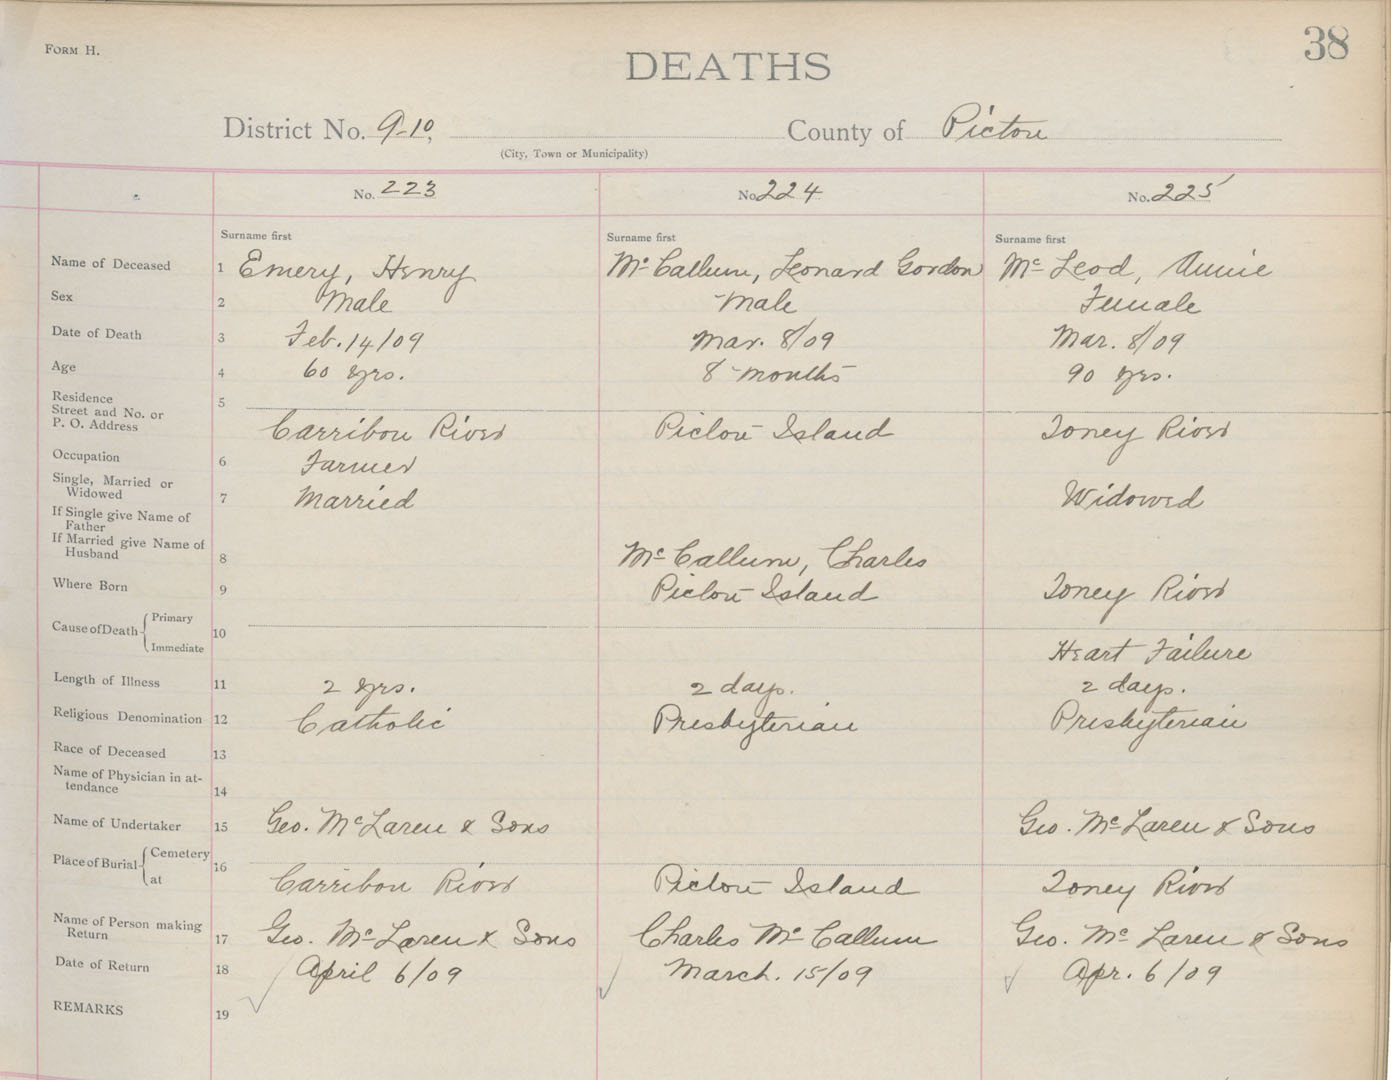 FORM H.
38
DEATHS
District No. 9-10, County of Pictou
(City, Town or Municipality)
No. 223 No. 224 No. 225
Surname first Surname first Surname first
Name of Deceased 1 Emery, Henry McCallum, Leonard Gordon McLeod, Annie
Sex 2 Male Male Female
Date of Death 3 Feb. 14/09 Mar. 8/09 Mar. 8/09
Age 4 60 yrs. 8 months 90 yrs.
Residence
Street and No. or 5
P. O. Address Carribou River Pictou Island Toney River
Occupation 6 Farmer
Single, Married or
Widowed 7 Married Widowed
If Single give Name of
Father
If Married give Name of
Husband 8 McCallum, Charles
Where Born 9 Pictou Island Toney River
Cause of Death Primary 10
Immediate Heart Failure
Length of Illness 11 2 yrs. 2 days. 2 days.
Religious Denomination 12 Catholic Presbyterian Presbyterian
Race of Deceased 13
Name of Physician in at-
tendance 14
Name of Undertaker 15 Geo. McLaren & Sons Geo. McLaren & Sons
Place of Burial Cemetery 16
at Carribou River Pictou Island Toney River
Name of Person making
Return 17 Geo. McLaren & Sons Charles McCallum Geo. McLaren & Sons
Date of Return 18 April 6/09 March. 15/09 Apr. 6/09
REMARKS 19